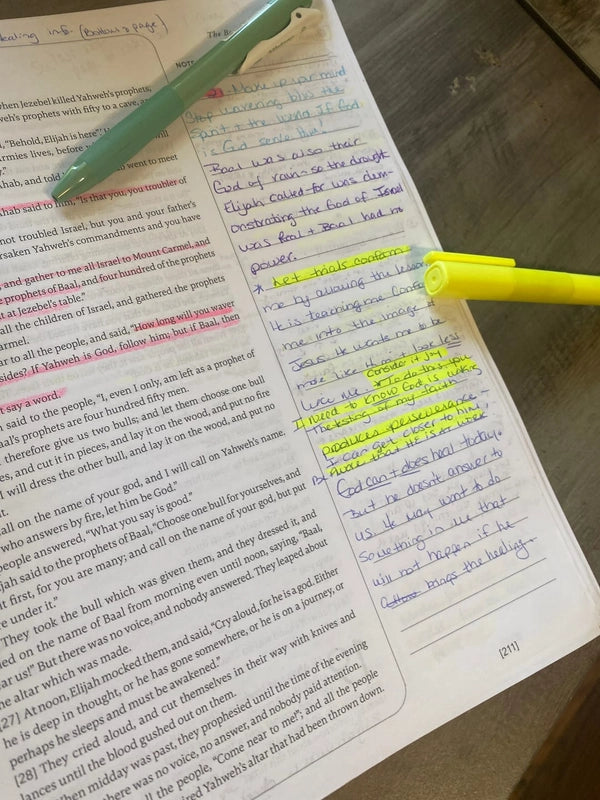 ealing info. (Bottom of page)
The B
NOTE
hen Jezebel killed Yahweh's prophets,
weh's prophets with fifty to a cave, a
, "Behold, Elijah is here".
rmies lives, before
y."
hab, and told
went to meet
hab said to him, "Is that you, you troubler of
not troubled Israel, but you and your father's
rsaken Yahweh's commandments and you have
, and gather to me all Israel to Mount Carmel, and
e prophets of Baal, and four hundred of the prophets
at at Jezebel's table."
all the children of Israel, and gathered the prophets
armel.
ar to all the people, and said, "How long will you waver
sides? If Yahweh is God, follow him; but if Baal, then
t say a word.
said to the people, "I, even I only, am left as a prophet of
aal's prophets are four hundred fifty men.
therefore give us two bulls; and let them choose one bull
es, and cut it in pieces, and lay it on the wood, and put no fire
I will dress the other bull, and lay it on the wood, and put no
it.
all on the name of your god, and I will call on Yahweh's name.
who answers by fire, let him be God."
people answered, "What you say is good."
jah said to the prophets of Baal, "Choose one bull for yourselves, and
it first, for you are many; and call on the name of your god, but put
e under it."
They took the bull which was given them, and they dressed it, and
ed on the name of Baal from morning even until noon, saying, "Baal,
ar us!" But there was no voice, and nobody answered. They leaped about
he altar which was made.
[27] At noon, Elijah mocked them, and said, "Cry aloud, for he is a god. Either
he is deep in thought, or he has gone somewhere, or he is on a journey, or
perhaps he sleeps and must be awakened."
[28] They cried aloud, and cut themselves in their way with knives and
lances until the blood gushed out on them.
When midday was past, they prophesied until the time of the evening
there was no voice, no answer, and nobody paid attention.
ll the people, "Come near to me!"; and all the people
ired Yahweh's altar that had been thrown down.
- Make up your mind
Stop wavering b/w the
Spirit & the world. If God
is God serve Him!
Baal was also their
God of rain - so the drought
Elijah called for was dem-
onstrating the God of Israel
was Real & Baal had no
power.
* Let trials conform
me by allowing the lesson
it is teaching me
me into the image of
Jesus. He wants me to be
more like Him & look less
like me * consider it joy
To do this you
I need to know God is working
the testing of my faith
produces perseverance
I can get closer to him,
aware that HE is at work
God can & does heal today.
But he doesn't answer to
us. He may want to do
something in us that
will not happen if he
brings the healing.
[211]